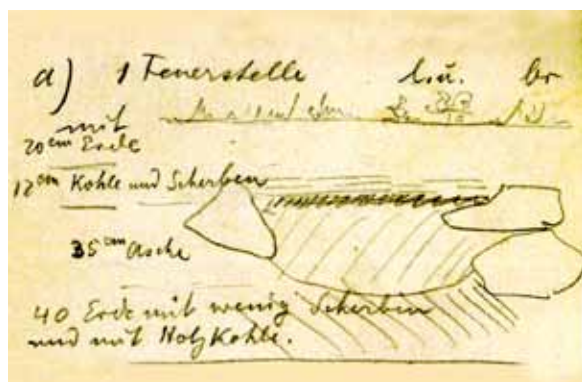 a) 1 Feuerstelle l.u. br
mit
20 cm Erde
12 cm Kohle und Scherben
35 cm Asche
40 Erde mit wenig Scherben
und mit Holzkohle.